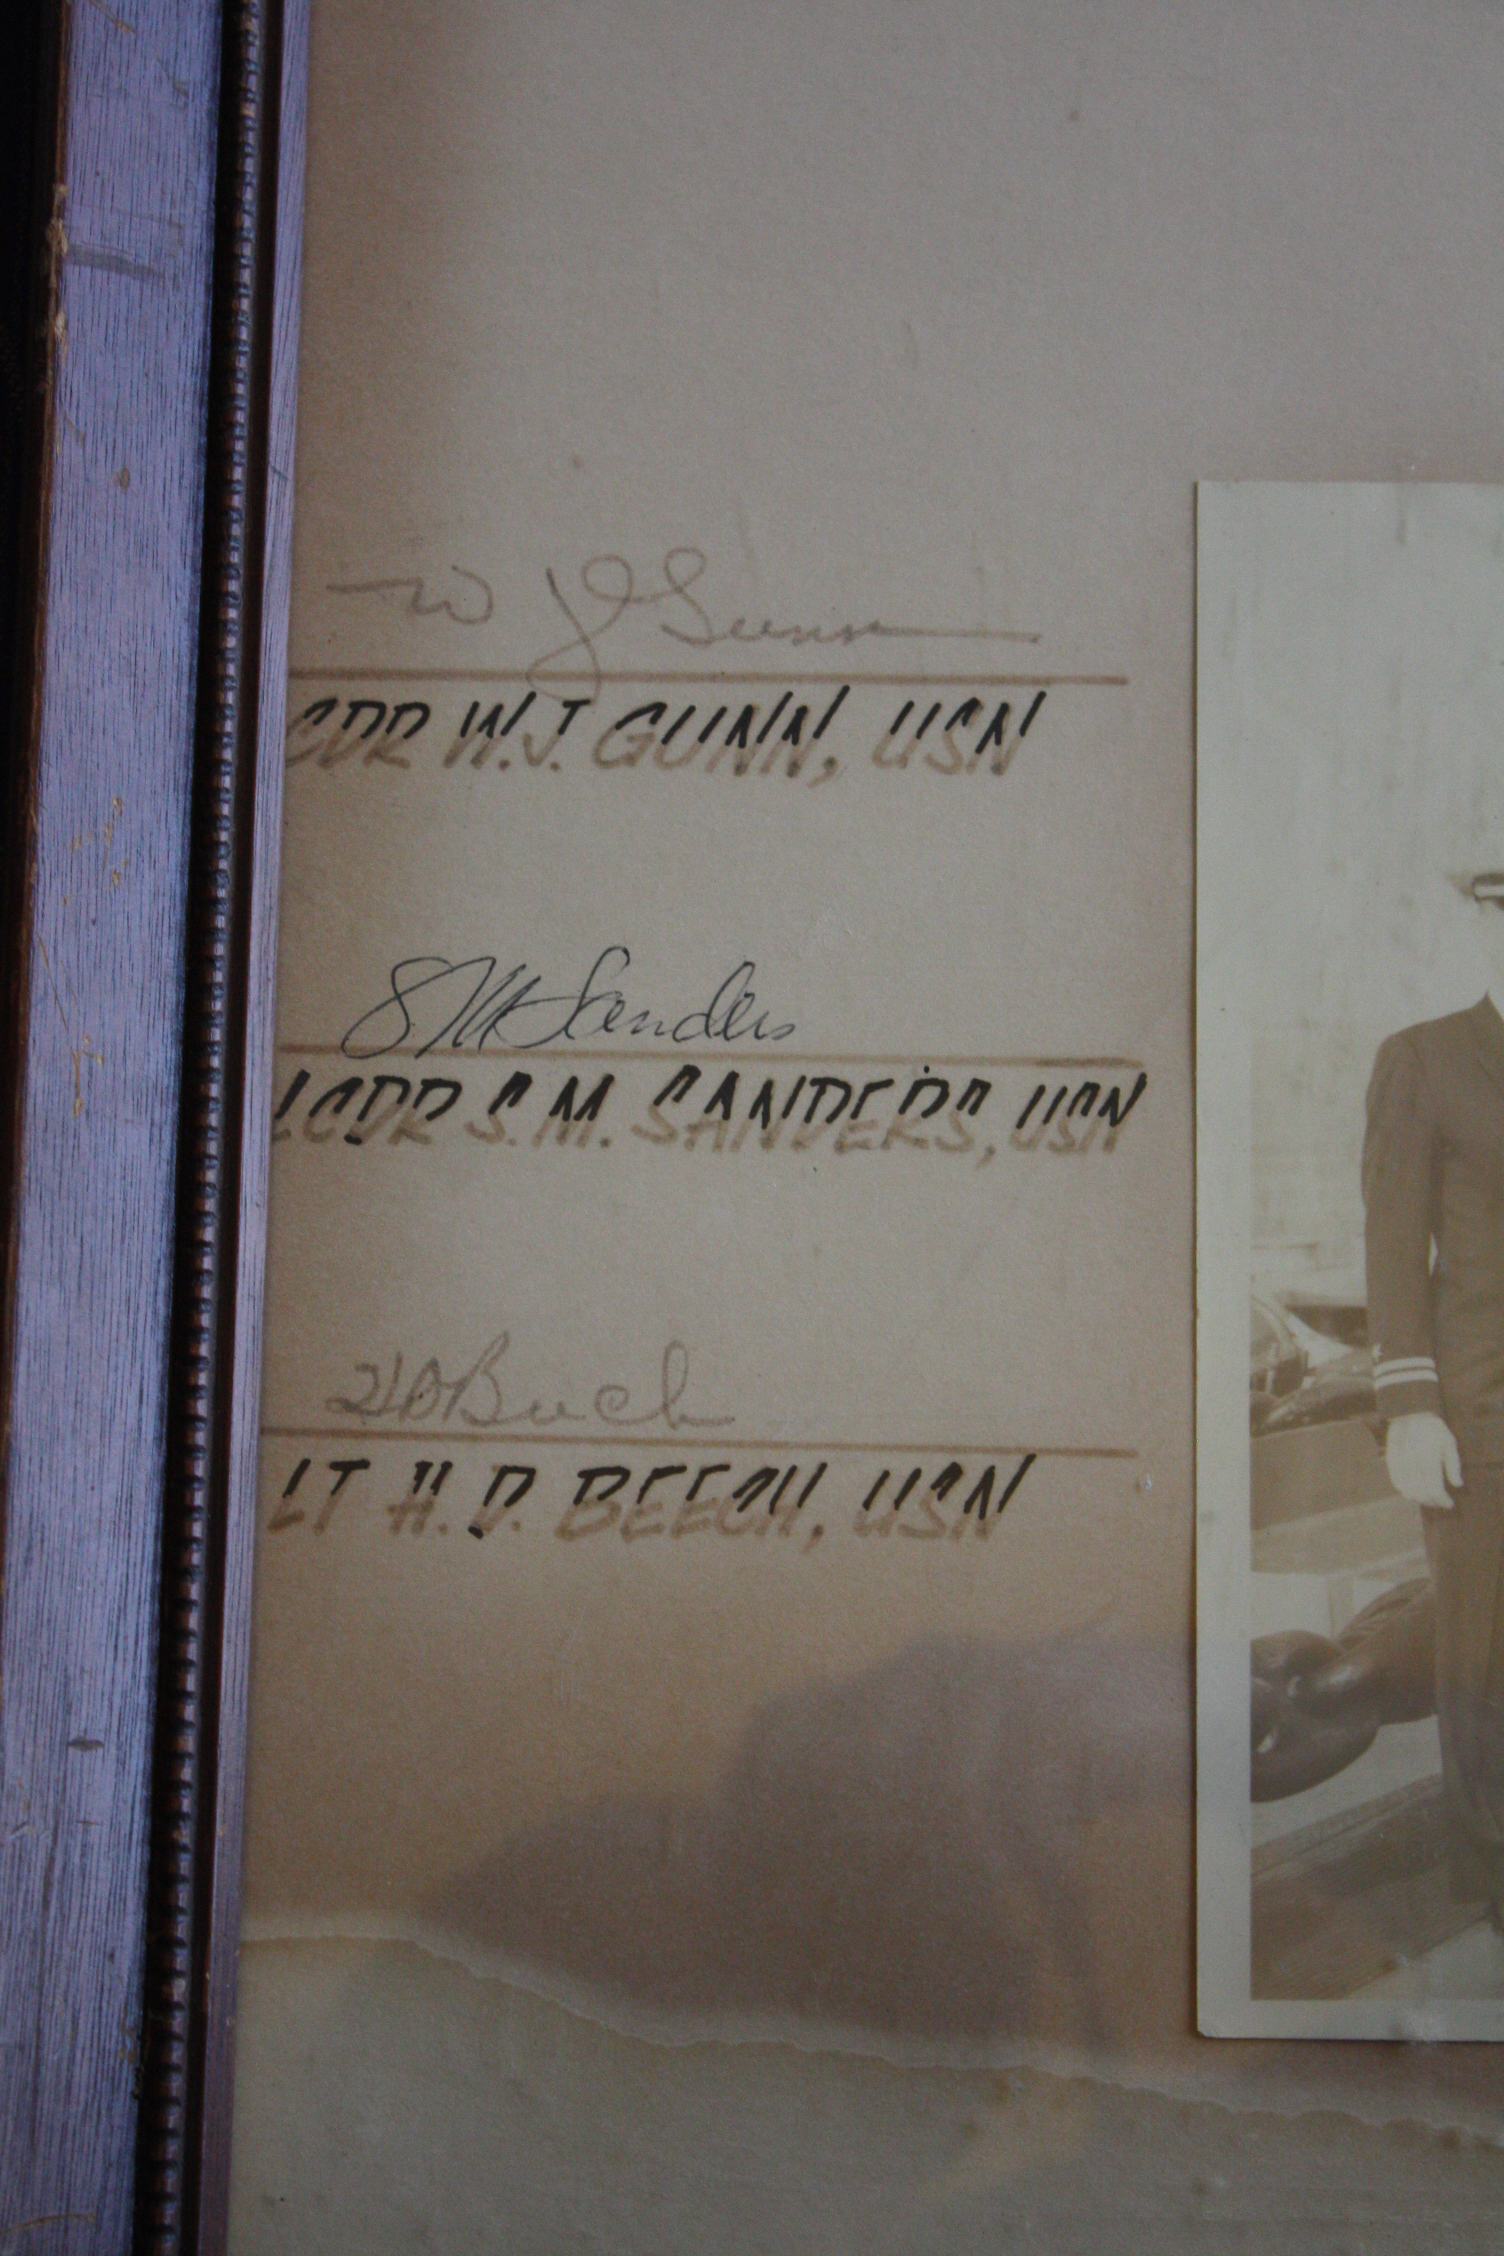 W J Gunn
CDR W.J. GUNN, USN
S M Sanders
LCDR S.M. SANDERS, USN
H D Beech
LT H. D. BEECH, USN